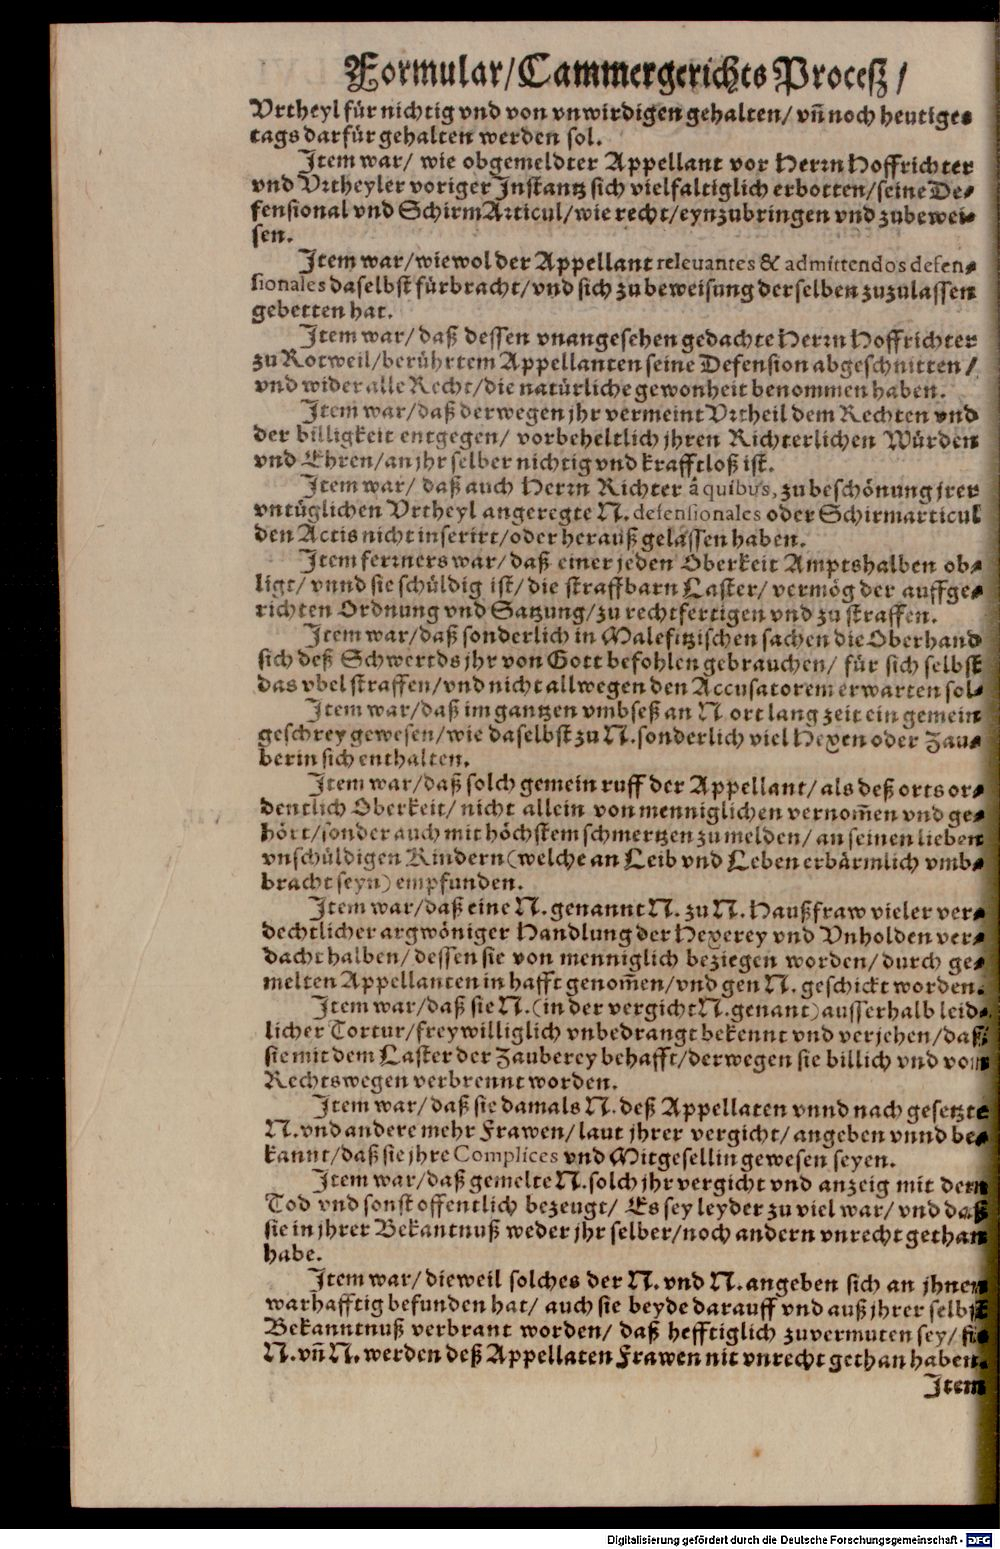 Formular/Cammergerichts Proceß/
Vrtheyl für nichtig vnd von vnwirdigen gehalten/ vñ noch heutiges
tags darfür gehalten werden sol.
Item war/ wie obgemeldter Appellant vor Herrn Hoffrichter
vnd Vrtheyler voriger Instantz sich vielfaltiglich erbotten/seine De-
fensional vnd SchirmArticul/wie recht/eynzubringen vnd zubewei-
sen.
Item war/wiewol der Appellant releuantes & admittendos defen-
sionales daselbst fürbracht/vnd sich zu beweisung derselben zuzulassen
gebetten hat.
Item war/daß dessen vnangesehen gedachte Herrn Hoffrichter
zu Rotweil/berührtem Appellanten seine Defension abgeschnitten/
vnd wider alle Recht/die natürliche gewonheit benommen haben.
Item war/daß derwegen jhr vermeint Vrtheil dem Rechten vnd
der billigkeit entgegen/ vorbeheltlich jhren Richterlichen Würden
vnd Ehren/an jhr selber nichtig vnd krafftloß ist.
Item war/ daß auch Herrn Richter à quibus, zu beschönung jrer
vntüglichen Vrtheyl angeregte N. defensionales oder Schirmarticul
den Actis nicht inserirt/oder herauß gelassen haben.
Item ferrners war/daß einer jeden Oberkeit Amptshalben ob-
ligt/ vnnd sie schüldig ist/die straffbarn Laster/ vermög der auffge-
richten Ordnung vnd Satzung/zu rechtfertigen vnd zu straffen.
Item war/daß sonderlich in Malefitzischen sachen die Oberhand
sich deß Schwertds jhr von Gott befohlen gebrauchen/ für sich selbst
das vbel straffen/vnd nicht allwegen den Accusatorem erwarten sol-
Item war/daß im gantzen vmbseß an N ort lang zeit ein gemein
geschrey gewesen/wie daselbst zu N. sonderlich viel Hexen oder Zau-
berin sich enthalten.
Item war/daß solch gemein ruff der Appellant/als deß orts or-
dentlich Oberkeit/ nicht allein von menniglichen vernom̃en vnd ge-
hört/sonder auch mit höchstem schmertzen zu melden/ an seinen lieben
vnschüldigen Kindern (welche an Leib vnd Leben erbärmlich vmb-
bracht seyn) empfunden.
Item war/daß eine N. genannt N. zu N. Haußfraw vieler ver-
dechtlicher argwöniger Handlung der Hexerey vnd Vnholden ver-
dacht halben/dessen sie von menniglich beziegen worden/durch ge-
melten Appellanten in hafft genom̃en/vnd gen N. geschickt worden.
Item war/daß sie N. (in der vergicht N. genant) ausserhalb leid-
licher Tortur/freywilliglich vnbedrangt bekennt vnd verjehen/daß
sie mit dem Laster der Zauberey behafft/derwegen sie billich vnd von
Rechtswegen verbrennt worden.
Item war/daß sie damals N. deß Appellaten vnnd nach gesetzte
N. vnd andere mehr Frawen/laut jhrer vergicht/angeben vnnd be-
kannt/daß sie jhre Complices vnd Mitgesellin gewesen seyen.
Item war/daß gemelte N. solch jhr vergicht vnd anzeig mit dem
Tod vnd sonst offentlich bezeugt/ Es sey leyder zu viel war/ vnd daß
sie in jhrer Bekantnuß weder jhr selber/noch andern vnrecht gethan
habe.
Item war/ dieweil solches der N. vnd N. angeben sich an jhnen
warhafftig befunden hat/ auch sie beyde darauff vnd auß jhrer selbst
Bekanntnuß verbrant worden/ daß hefftiglich zuvermuten sey/ sie
N. vñ N. werden deß Appellaten Frawen nit vnrecht gethan haben.
Item
Digitalisierung gefördert durch die Deutsche Forschungsgemeinschaft - DFG